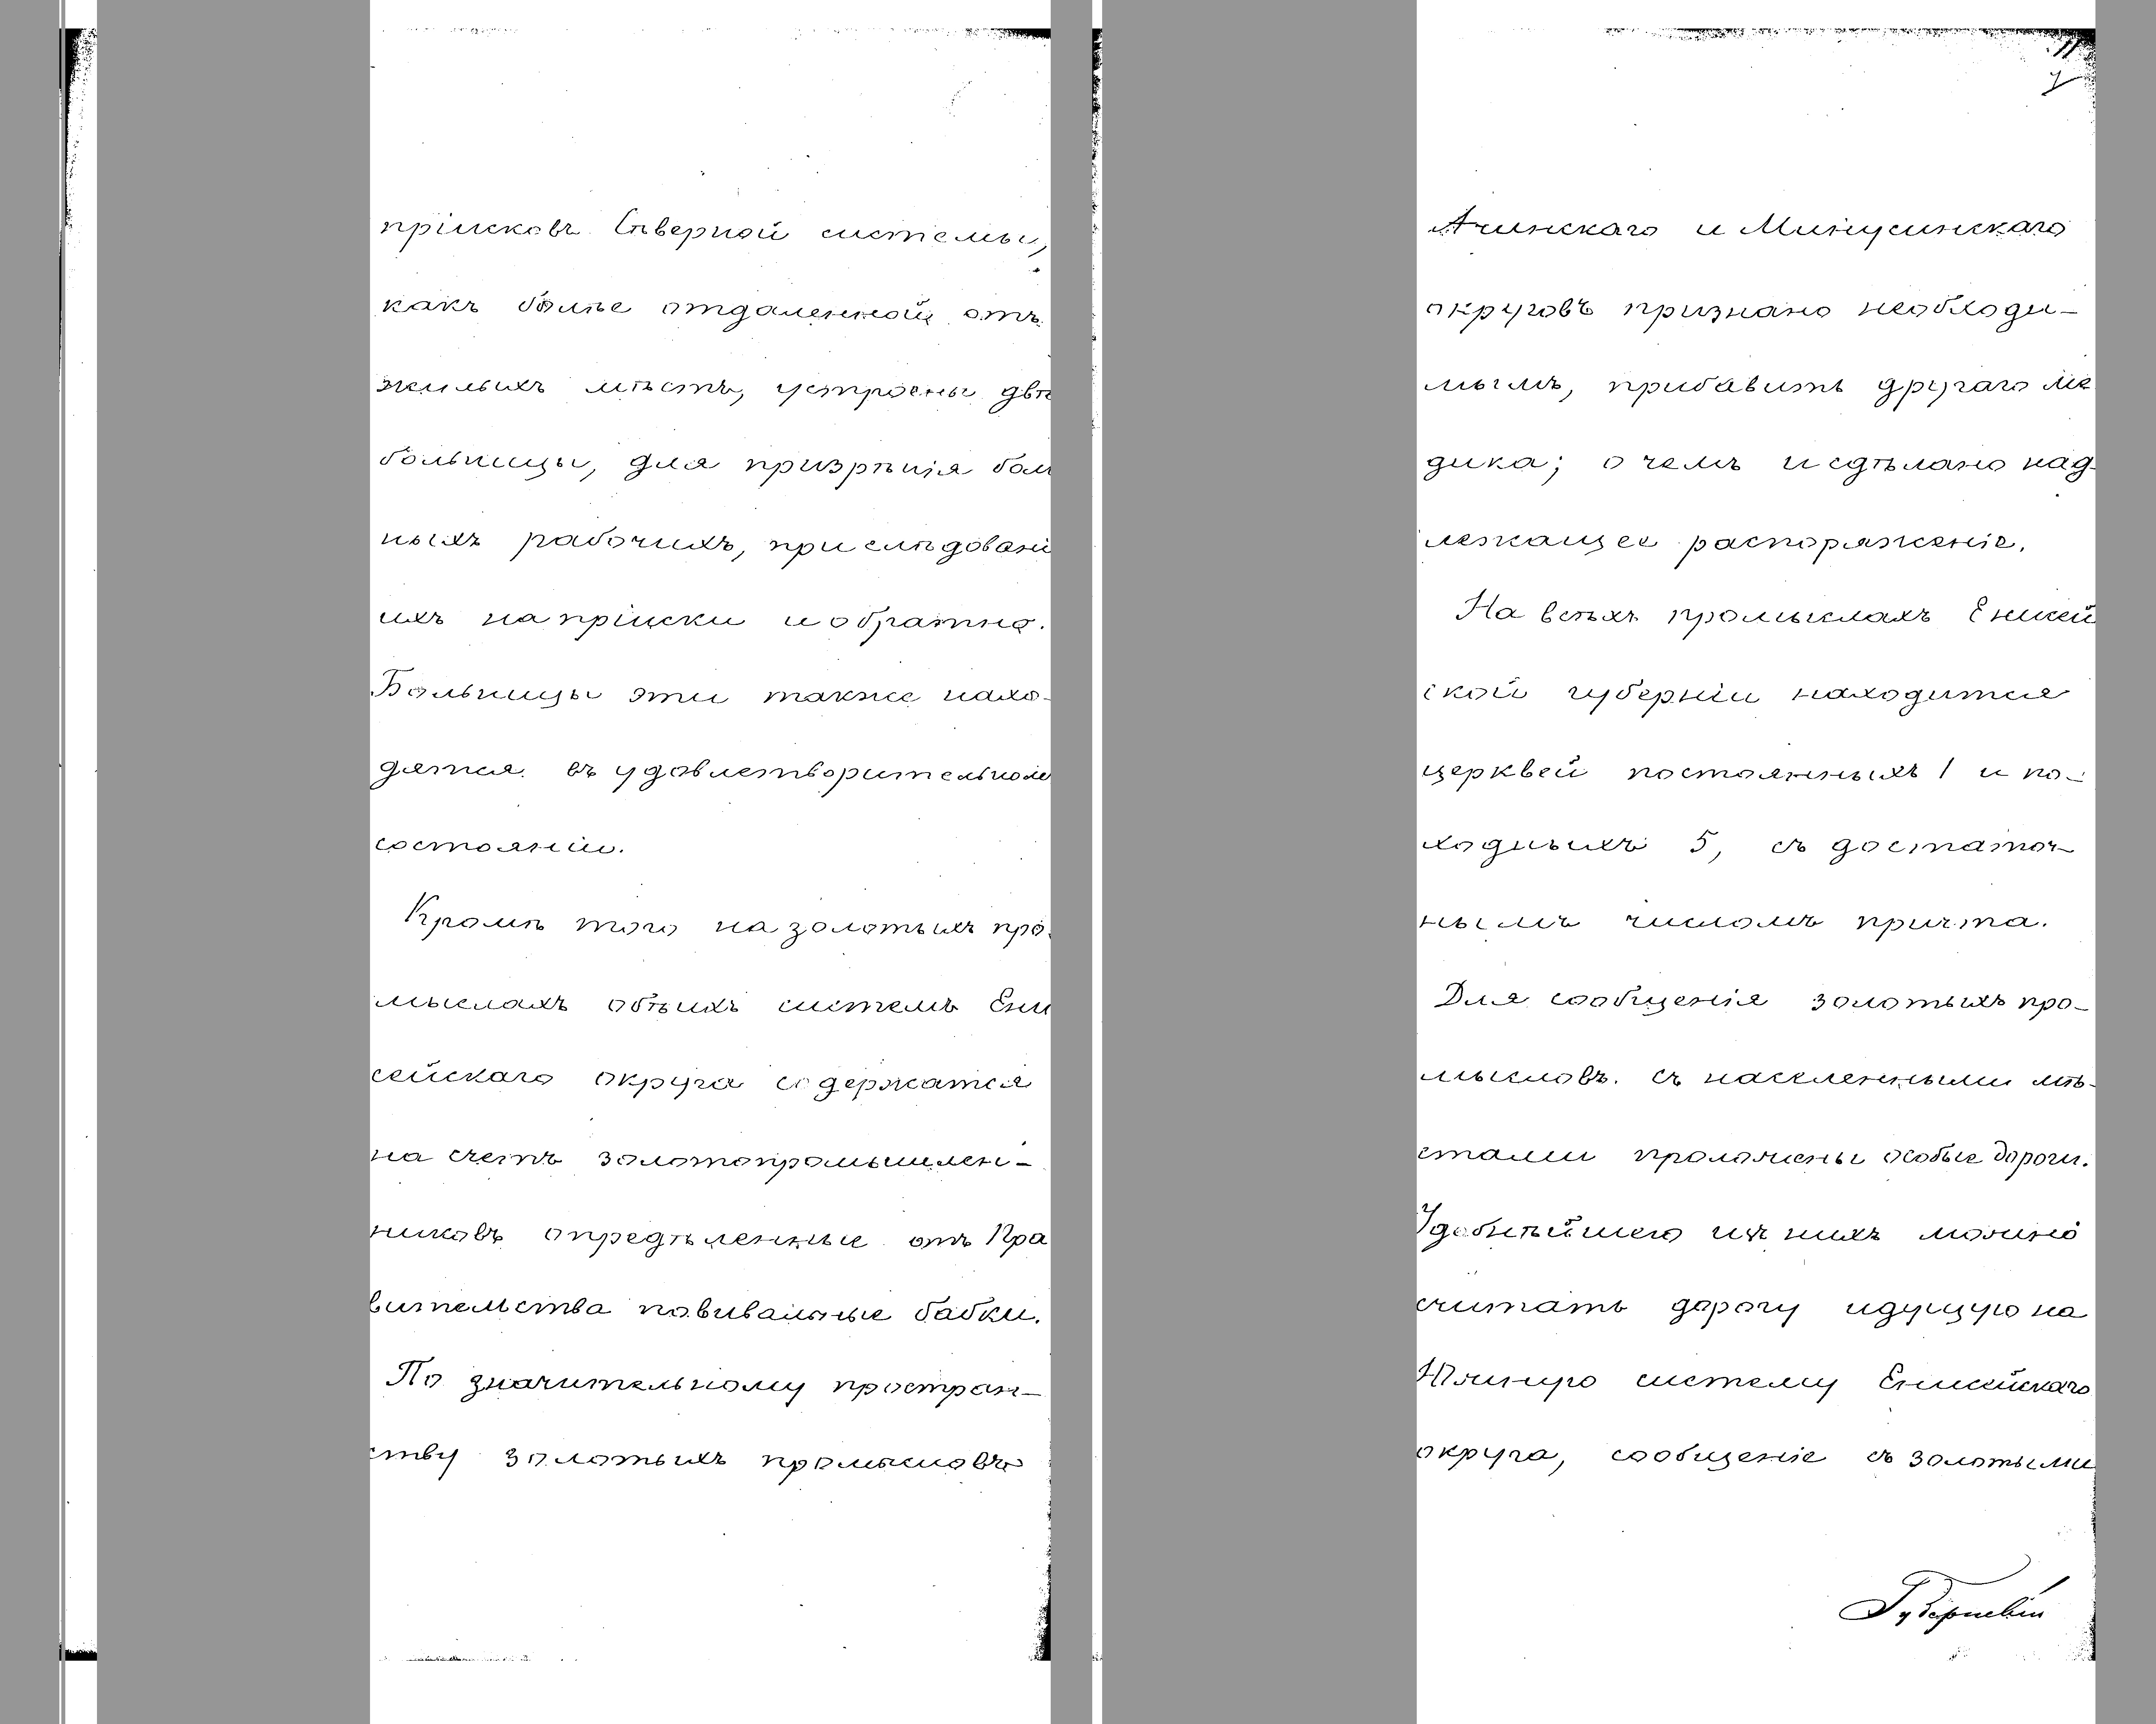 пріисковъ Сѣверной системы,
какъ болѣе отдаленной отъ
жилыхъ мѣстъ, устроены двѣ
больницы, для призрѣнія бол
ныхъ рабочихъ, при слѣдовані
ихъ на пріиски и обратно.
Больницы эти также нахо-
дятся въ удовлетворительном
состояніи.
Кромѣ того на золотыхъ про-
мыслахъ обѣихъ системъ Ени
сейскаго округа содержатся
на счетъ золотопромышлен-
никовъ опредѣленные отъ Пра
вительства повивальные бабки.
По значительному простран-
ству золотыхъ промысловъ
11
Ачинскаго и Минусинскаго
округовъ признано необходи-
мымъ, прибавить другаго ме
дика; о чемъ и сдѣлано над-
лежащее распоряженіе.
На всѣхъ промыслахъ Енисей
ской губерніи находится
церквей постоянныхъ 1 и по-
ходныхъ 5, съ достаточ-
нымъ числомъ причта.
Для сообщенія золотыхъ про-
мысловъ съ населенными мѣ-
стами проложены особые дороги.
Удобнѣйшею изъ нихъ можно
считать дорогу идущую на
Южную систему Енисейскаго
округа, сообщеніе съ золотыми